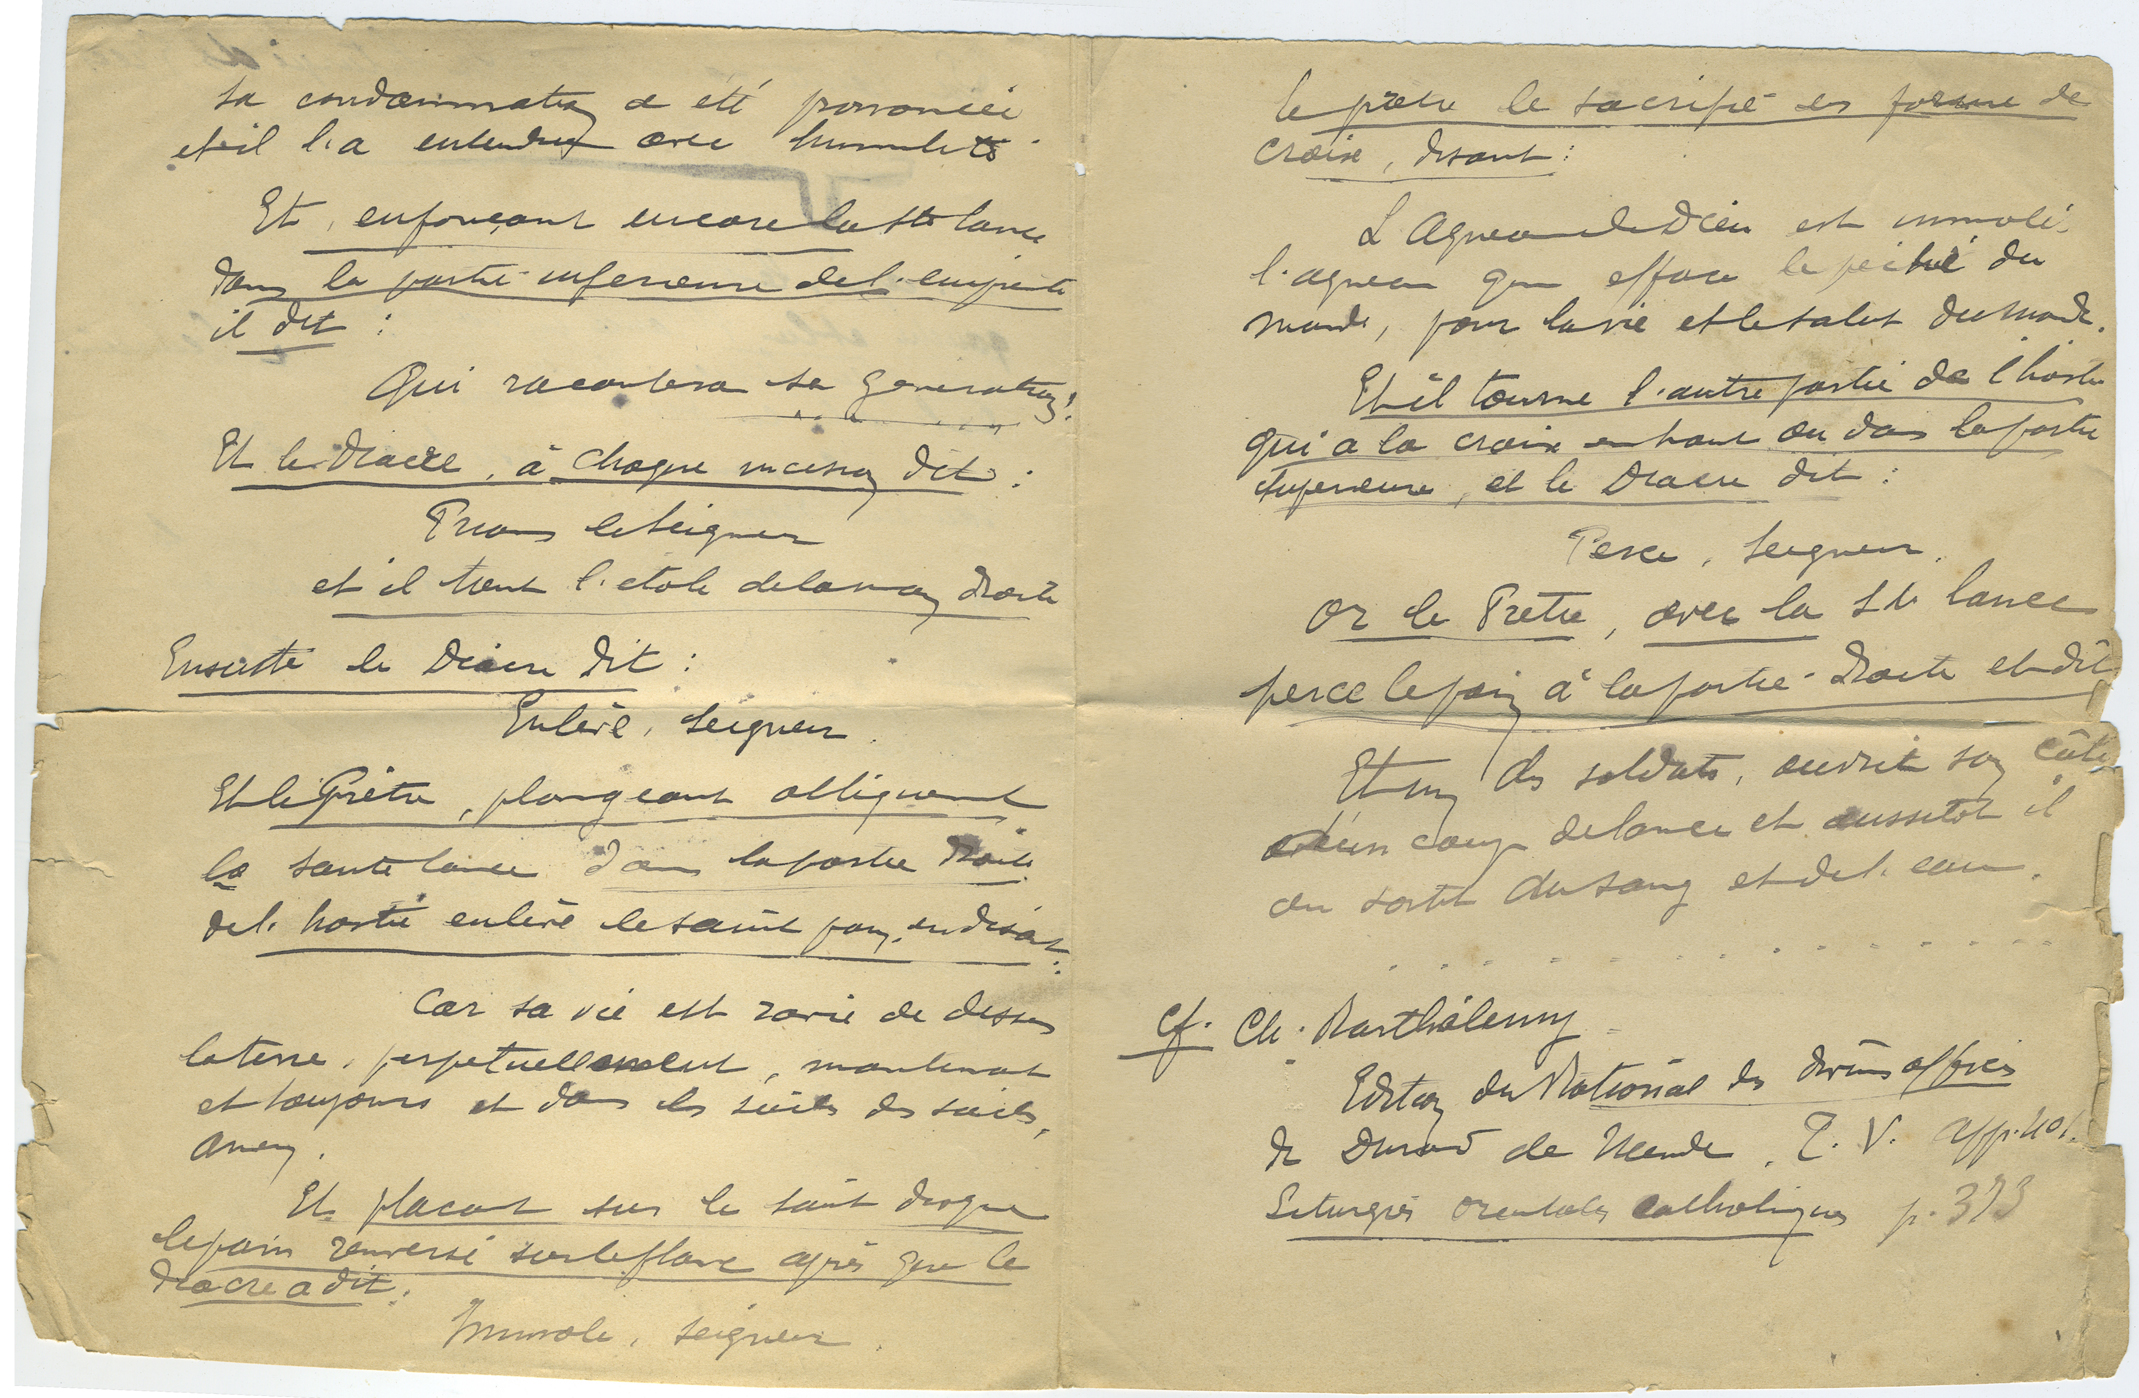 sa condamnation a été prononcée
et il l'a entendue avec humilité
Et, enfonçant encore la Ste lance
dans la partie inferieure de l'empreinte
il dit :
Qui racontera sa generation?
Et le Diacre, à chaque incision dit :
Prions le Seigneur
et il tient l'etole de la main droite
Ensuite le Diacre dit :
Enlève, Seigneur.
Et le Prêtre, plongeant obliquement
la sainte lance dans la partie droite
de l'hostie enlève le saint pain, en disant :
Car sa vie est ravie de dessus
la terre, perpetuellement, maintenant
et toujours et dans les siècles des siècles,
Amen.
Et placant sur le saint disque
le pain renversé sur le flanc après que le
diacre a dit :
Immole, Seigneur.
le prêtre le sacrifie en forme de
croix, disant :
L'Agneau de Dieu est immolé,
l'agneau qui efface le péché du
monde, pour la vie et le salut du monde.
Et il tourne l'autre partie de l'hostie
qui a la croix en haut ou dans la partie
superieure, et le Diacre dit :
Perce, Seigneur.
Or le Prêtre, avec la Ste lance
perce le pain à la partie droite et dit
Et un des soldats, ouvrit son côté
d'un coup de lance et aussitot il
en sortit du sang et de l'eau.
. . . . . . . . . . . .
Cf. Ch. Barthélemy
Edition du Rational des divins offices
de Durand de Mende. T. V. app. 
Liturgies orientales catholiques p. 373